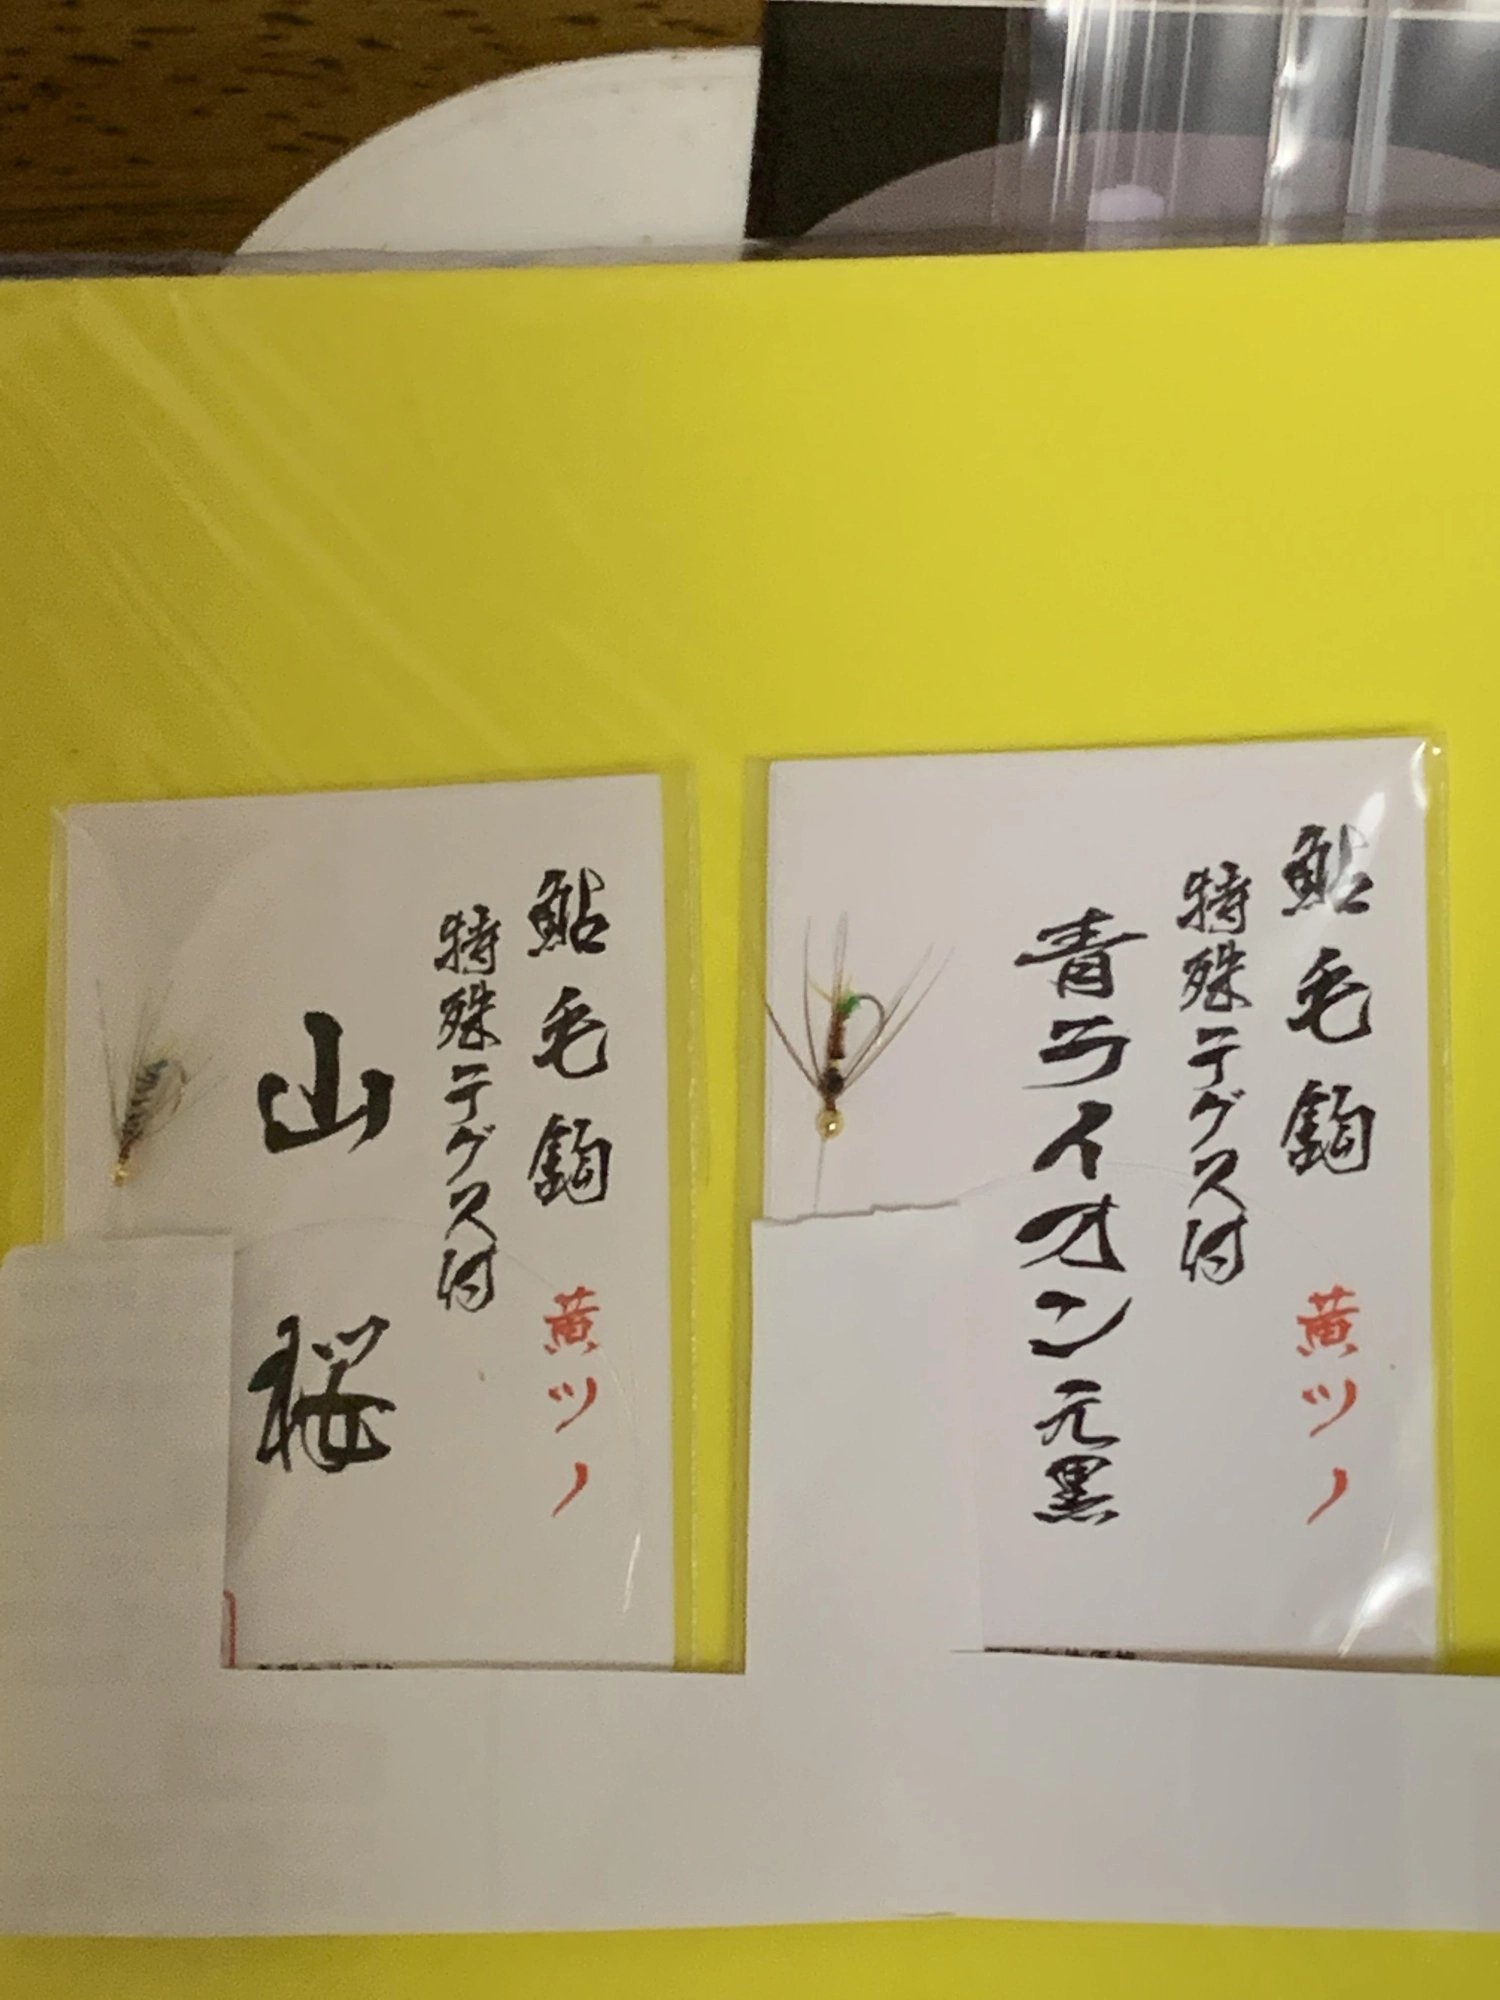 鮎毛鈎 黄ツノ
特殊テグス付
青ライオン元黒
鮎毛鈎 黄ツノ
特殊テグス付
山桜